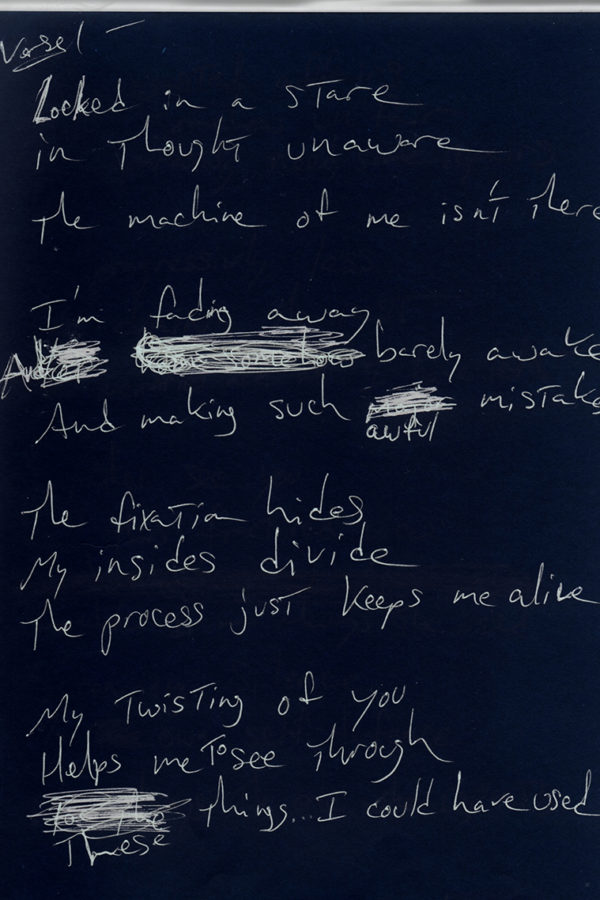 Vessel -
Locked in a stare
in Thought unaware
The machine of me isn't there
I'm fading away
And barely awake
And making such awful mistake
The fixation hides
My insides divide
The process just keeps me alive
My Twisting of you
Helps me To see Through
These things... I could have used